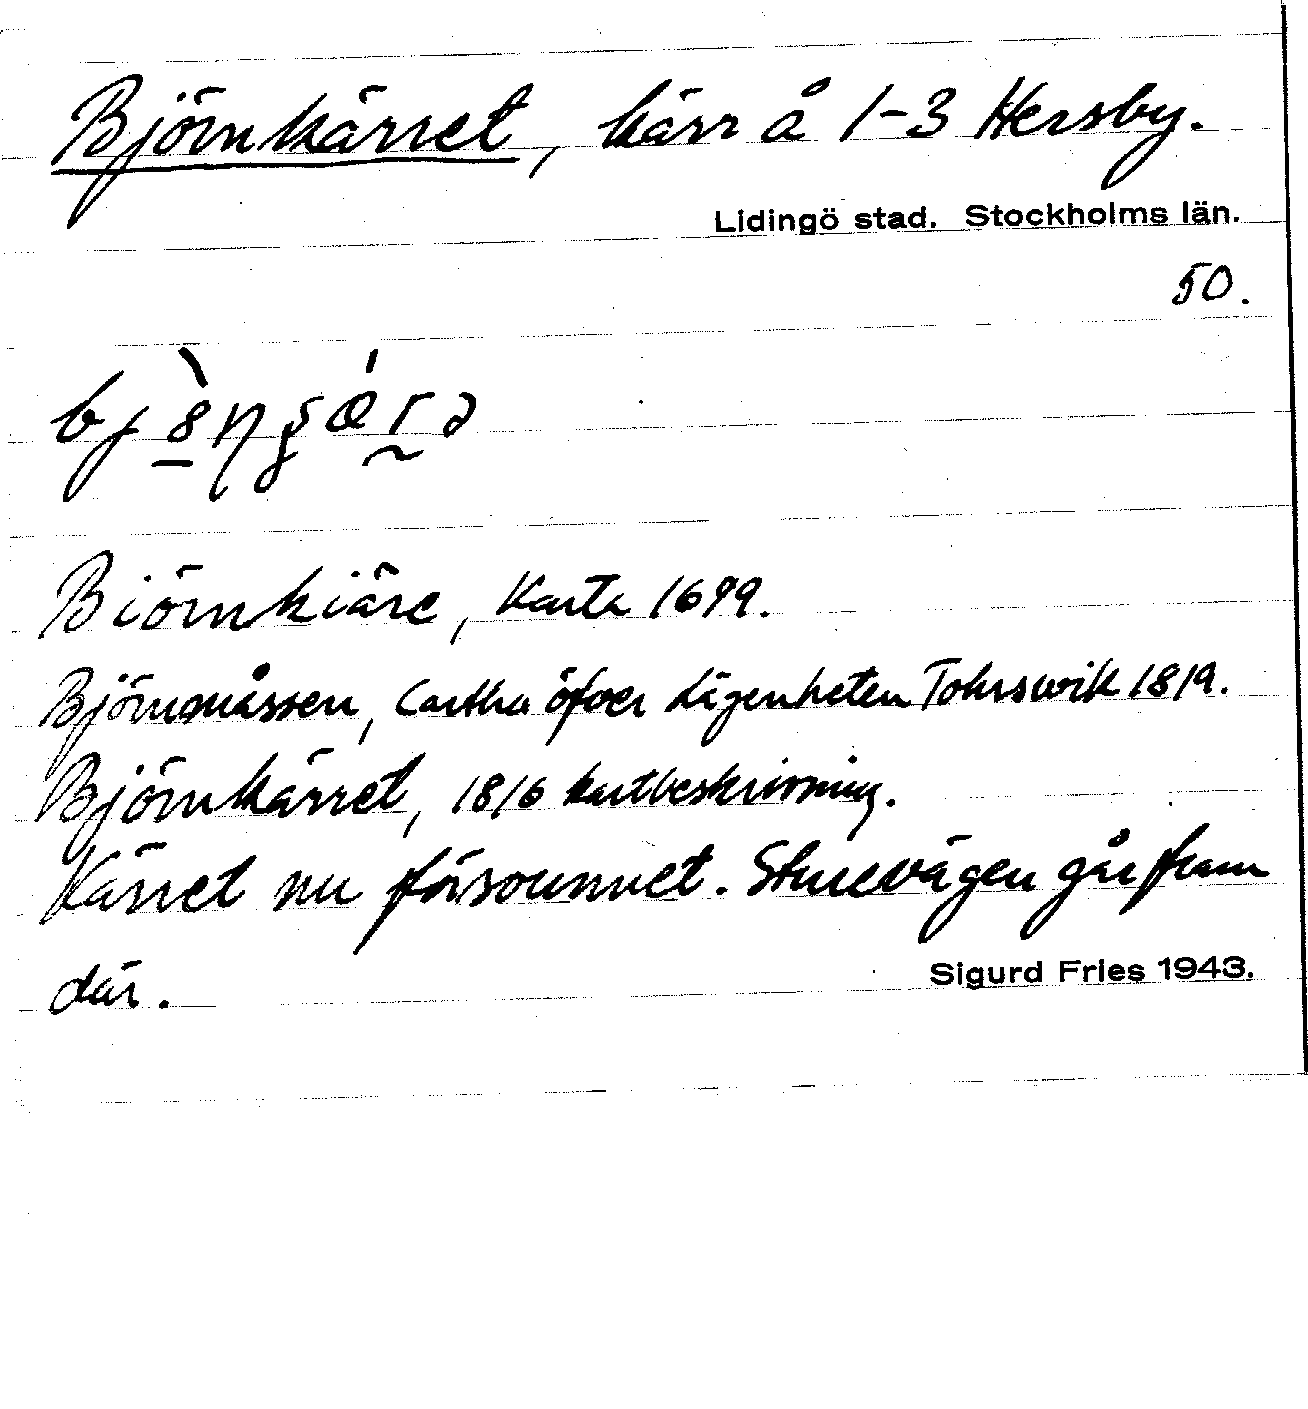 Björnkärret, kärr å 1-3 Hersby.
Lidingö stad. Stockholms län.
50.
Biörnkiäre, Karta 1699.
Björnmåssen, Cartha öfver Lägenheten Tohrswik 1819.
Björnkärret, 1816 kartbeskrivning.
Kärret nu försvunnet. Sturevägen går fram
där.
Sigurd Fries 1943.